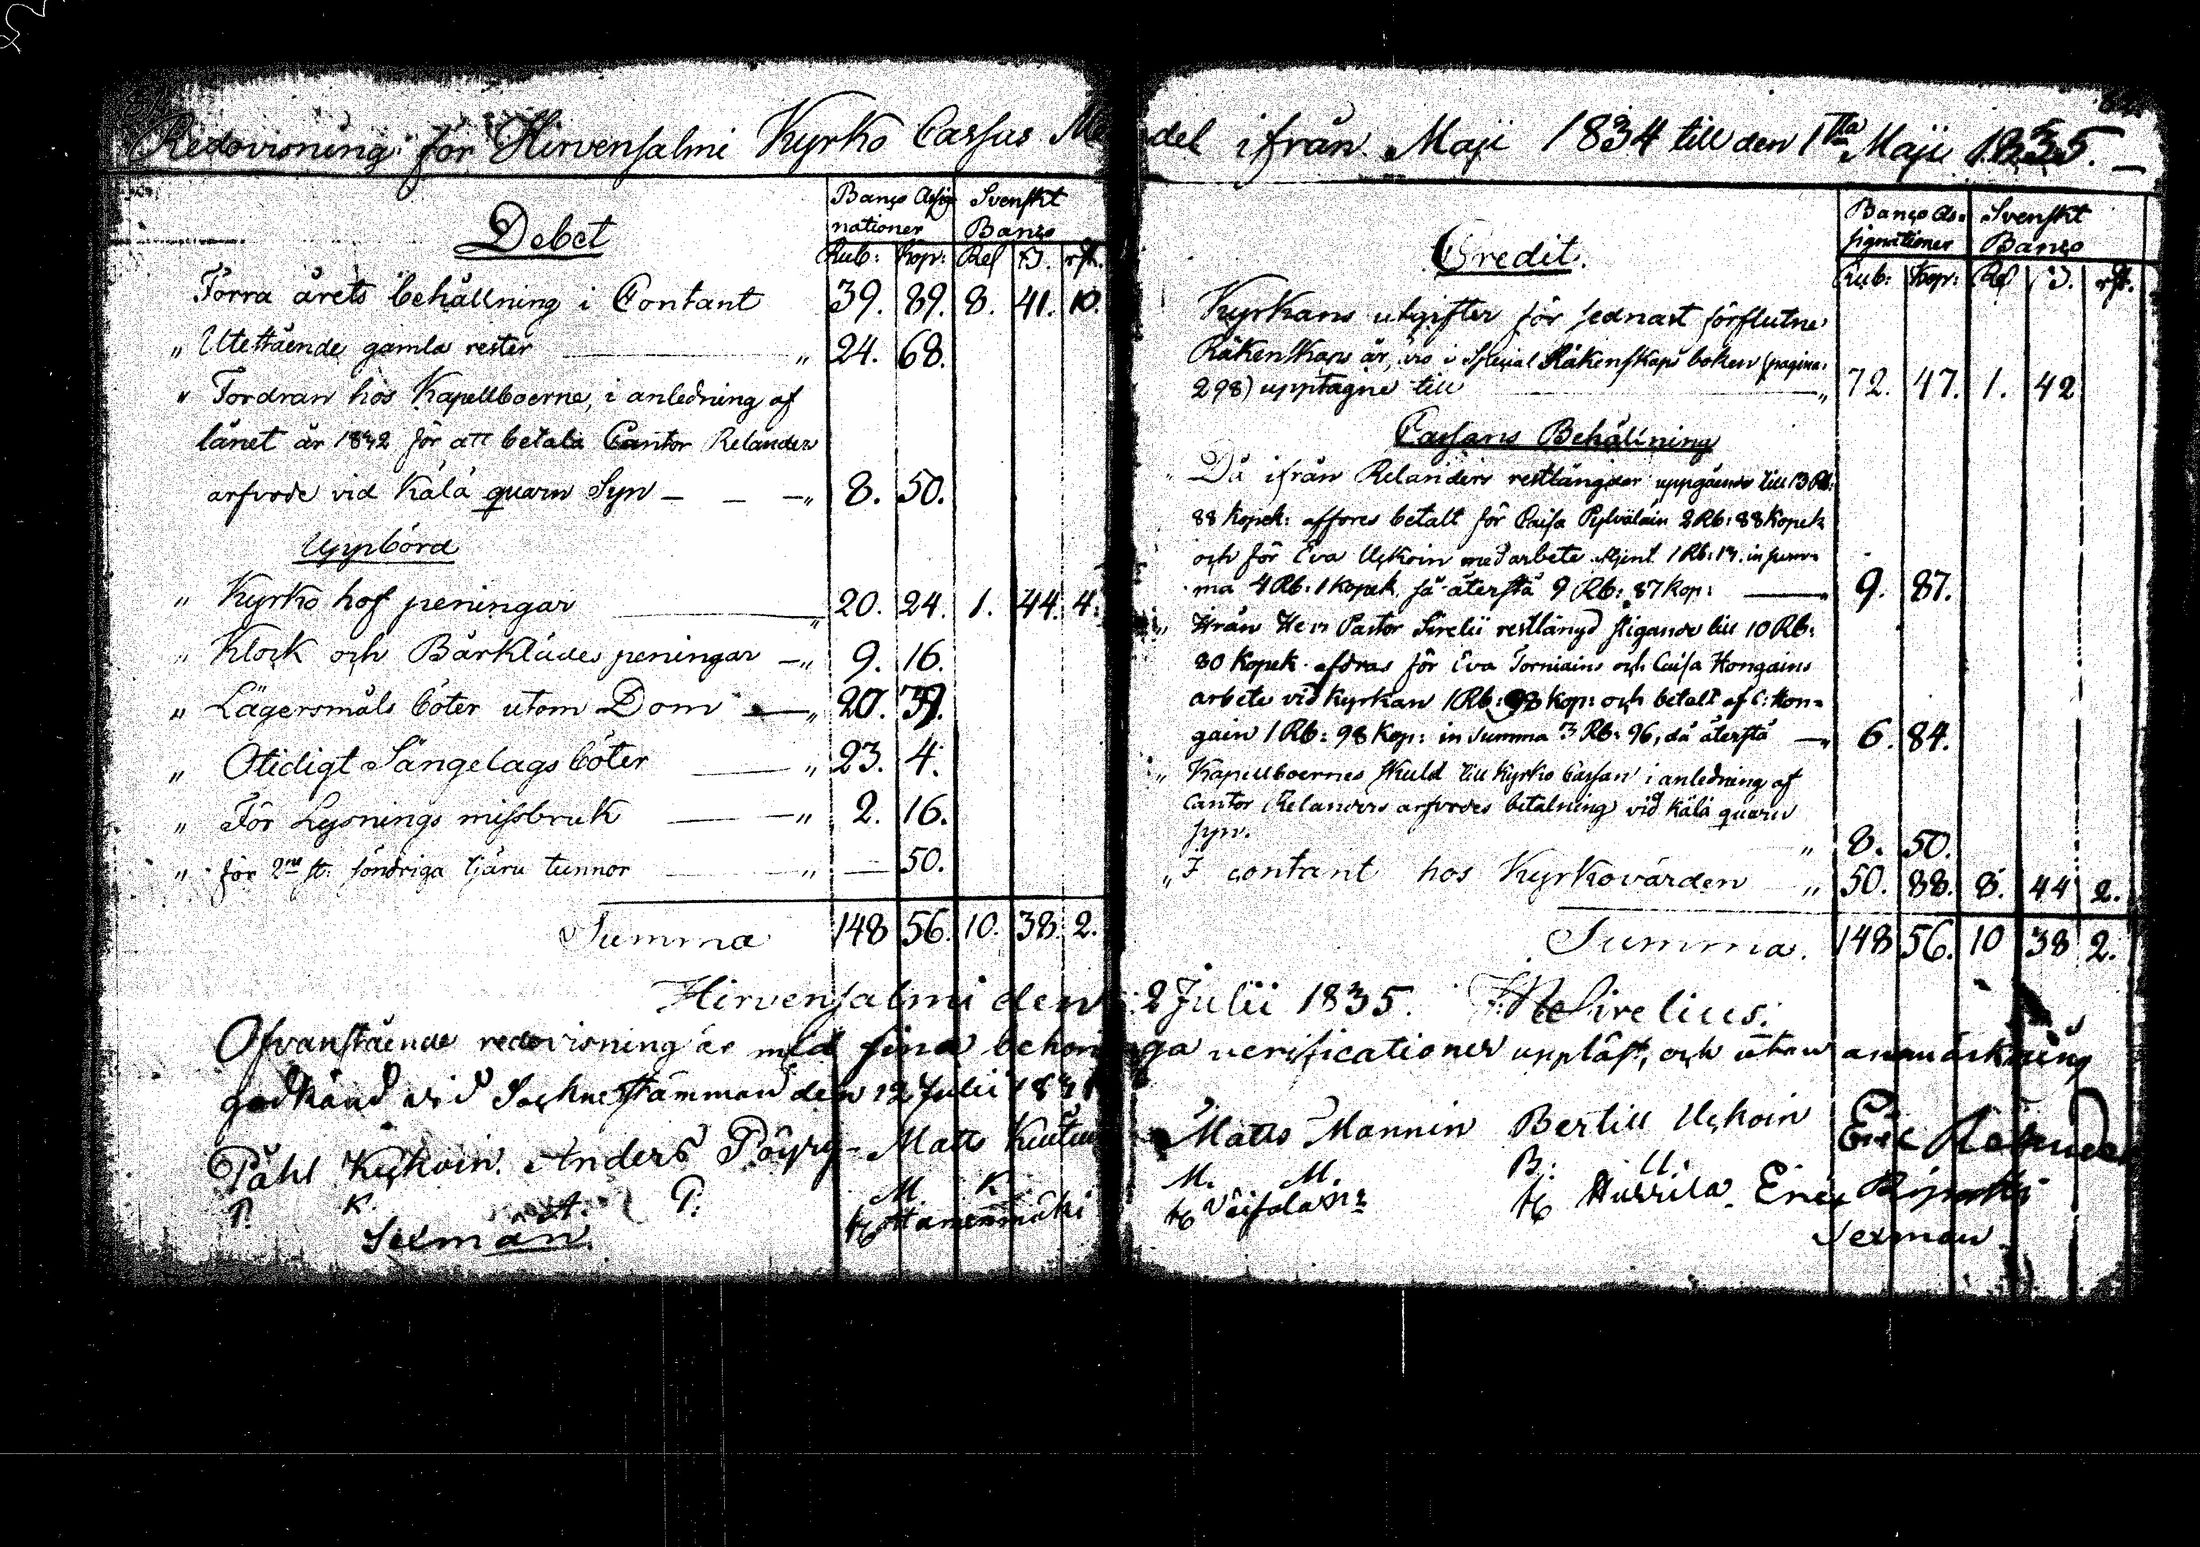 Redovisning för Hirvensalmi Kyrko Cassas Medel ifrån Maji 1834 till den 1sta Maji 1835.
Debet
Banco Assig
nationer
Svenskt
Banco
Rub: Kop: Rd ß. rst.
Förra årets behållning i Contant 39. 89. 8. 41. 10.
" Utestående gamla rester " 24. 68.
" Fordran hos Kapellboerne, i anledning af
lånet år 1832 för att betala Cantor Relander
arfvode vid Kälä quarn Syn — — — " 8. 50.
Uppbörd
" Kyrko hof peningar " 20. 24. 1. 44. 4.
" Klock och Bårklädes peningar — " 9. 16.
" Lägersmåls böter utom Dom — " 20. 39.
" Otidigt Sängelags böter " 23. 4.
" För Lysnings missbruk — — " 2. 16.
" för 2ne st: söndriga tjäru tunnor " — 50.
Summa 148 56. 10. 38. 2.
Credit.
Banco As-
signationer
Svenskt
Banco
Rub: Kop: Rd ß. rst.
Kyrkans utgifter för sednast förflutne
Räkenskaps år, i Special Räkenskaps boken (pagina
298) upptagne till " 72. 47. 1. 42
Cassans Behållning
" Då ifrån Relanders restlängder uppgående till 13 Rb:
88 Kopek: affores betalt för Caisa Pylväläin 2 Rb: 88 Kopek
och för Eva Uckoin med arbete 1 Rb: 13. in sum-
ma 4 Rb: 1 Kopek, så återstå 9 Rb: 87 Kop: 9. 87.
" Ifrån Herr Pastor Sirelii restlängd stigande till 10 Rb:
80 Kopek afdras för Eva Torniains och Caisa Hongains
arbete vid Kyrkan 1 Rb: 98 Kop: och betalt af C: Hon-
gain 1 Rb: 98 Kop: in summa 3 Rb: 96, då återstå — " 6. 84.
" Kapellboernes skuld till Kyrko Cassan i anledning af
Cantor Relanders arfvodes betalning vid Kälä quarn
syn. " 8. 50.
" I contant hos Kyrkovärden " 50. 88. 8. 44 2.
Summa. 148 56. 10 38 2.
Hirvensalmi den 2 Julii 1835. Sirelius.
Ofvanstående redovisning är med sina behöriga verificationer uppläst, och utan anmärkning
godkänd vid Sockne Stämman den 12 Julii
Påhl Kuckoin. Anders Pöyry — Matts Matts Mannin Bertill Uckoin Eric
P. K. A. P. M. K. M. M. B. U.
Sexman Hurrila Eric
Sexman